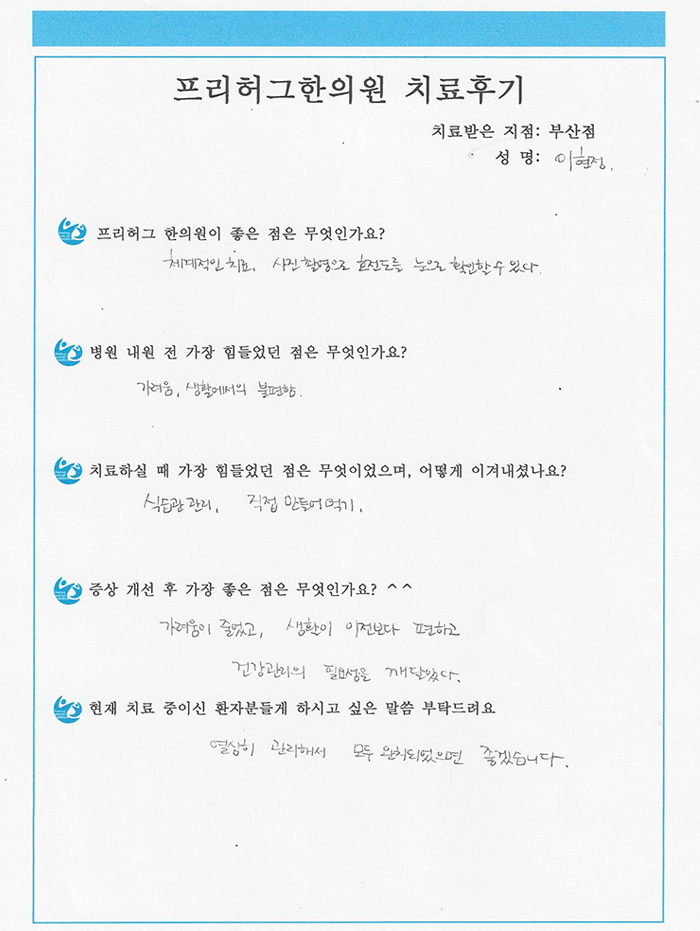 프리허그한의원 치료후기
치료받은 지점: 부산점
성 명: 이현정.
프리허그 한의원이 좋은 점은 무엇인가요?
체계적인 치료, 사진촬영으로 호전도를 눈으로 확인할 수 있다.
병원 내원 전 가장 힘들었던 점은 무엇인가요?
가려움, 생활에서의 불편함.
치료하실 때 가장 힘들었던 점은 무엇이었으며, 어떻게 이겨내셨나요?
식습관 관리, 직접 만들어 먹기.
증상 개선 후 가장 좋은 점은 무엇인가요? ^^
가려움이 줄었고, 생활이 이전보다 편하고
건강관리의 필요성을 깨달았다.
현재 치료 중이신 환자분들게 하시고 싶은 말씀 부탁드려요
열심히 관리해서 모두 완치되었으면 좋겠습니다.